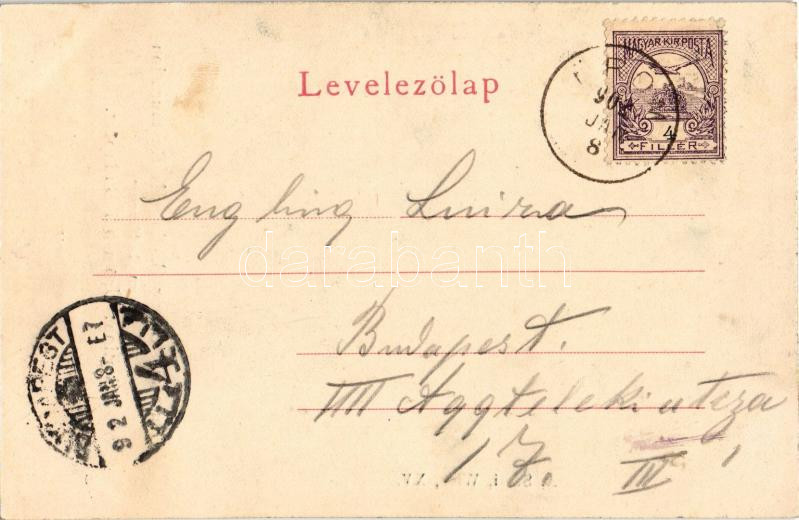 Levelezölap
MAGYAR·KIR·POSTA
4
FILLÉR
902
JAN
8
Engling Luiza
darabanth
Budapest.
VIII Aggteleki utcza
17. III
BUDAPEST
92 JAN 8- E7